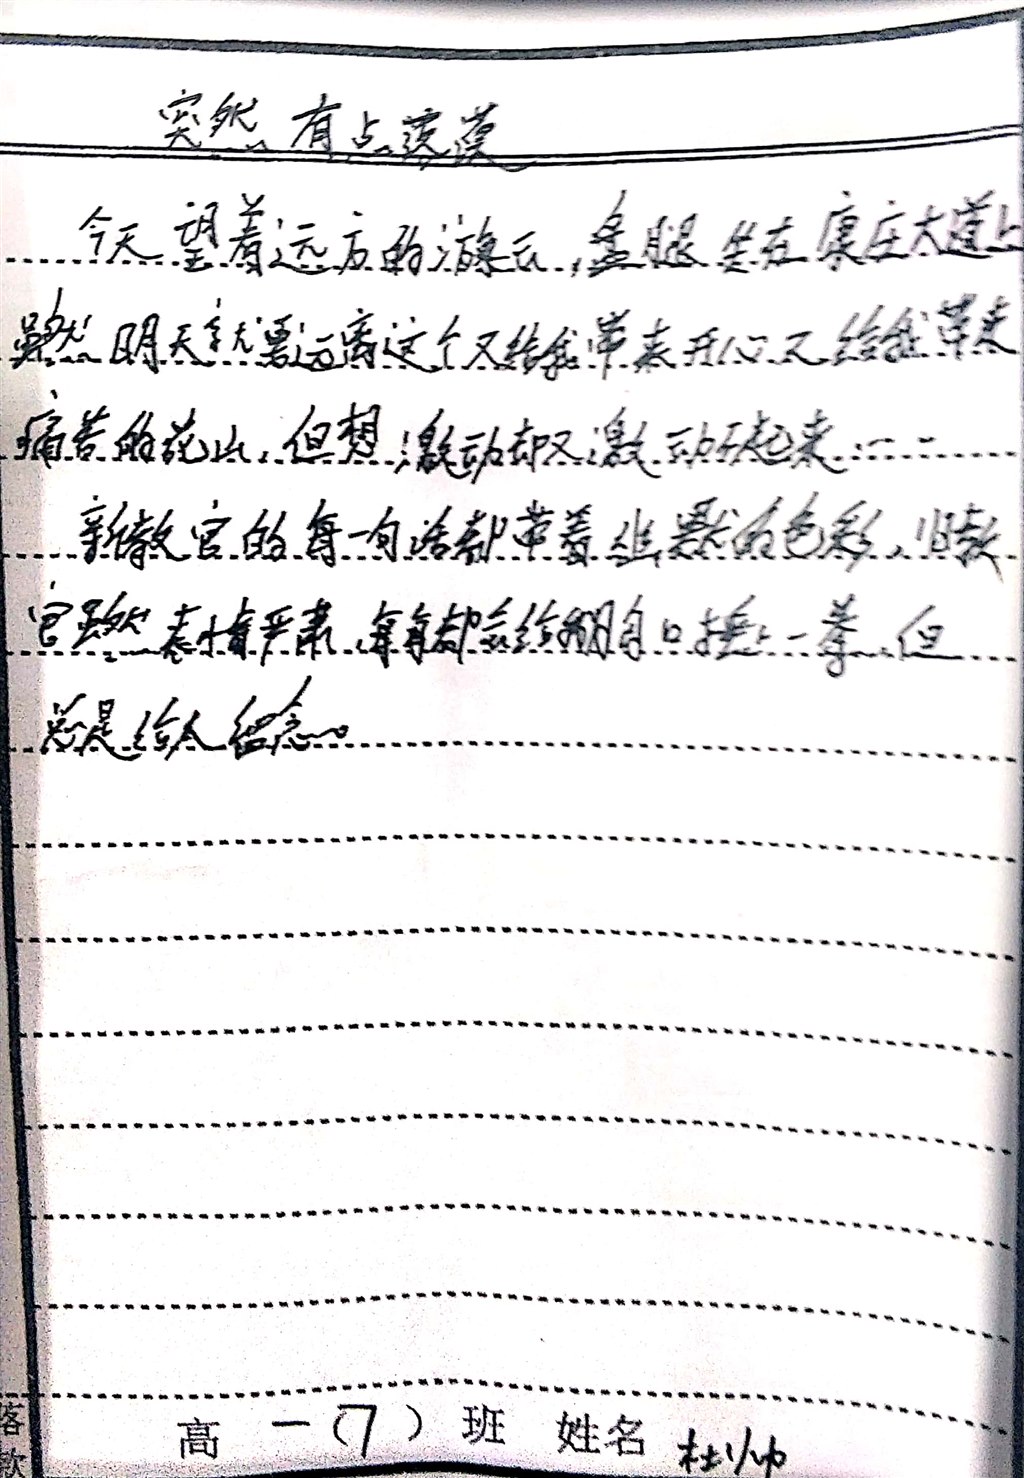 突然有点落寞
今天望着远方的游云，盘腿坐在康庄大道上
虽然明天就要远离这个又给我带来开心又给我带来
痛苦的花山，但想激动却又激动不起来……
新教官的每一句话都带着幽默的色彩，旧教
官虽然表情严肃，每每却会给胸口捶上一拳，但
总是给人留念。
高一（7）班 姓名 杜小帅
落款